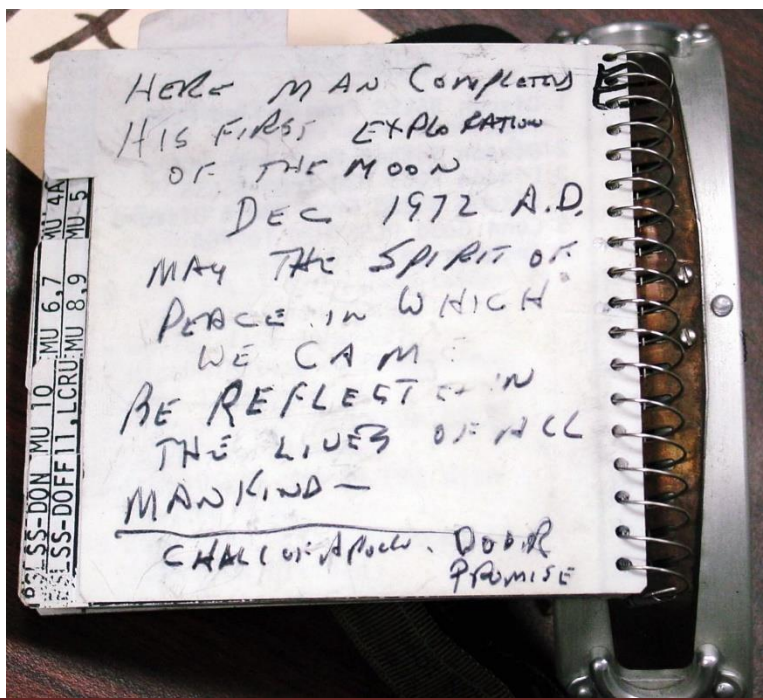 HERE MAN COMPLETED
HIS FIRST EXPLORATION
OF THE MOON
DEC 1972 A.D.
MAY THE SPIRIT OF
PEACE IN WHICH
WE CAME
BE REFLECTED IN
THE LIVES OF ALL
MANKIND—
CHALL OF APOLLO.
PROMISE
MU 4A
MU 5
MU 6,7
MU 8,9
SS-DON MU 10
SS-DOFF11,LCRU